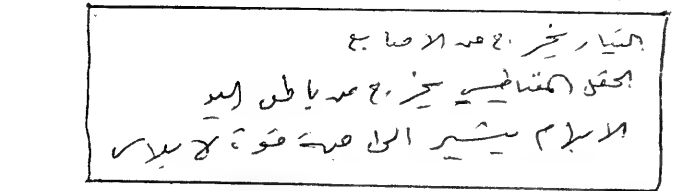 التيار يخرج من الاصابع
الحقل المقناطيسي يخرج من باطن اليد
الابهام يشير الى جهة قوة لابلاس